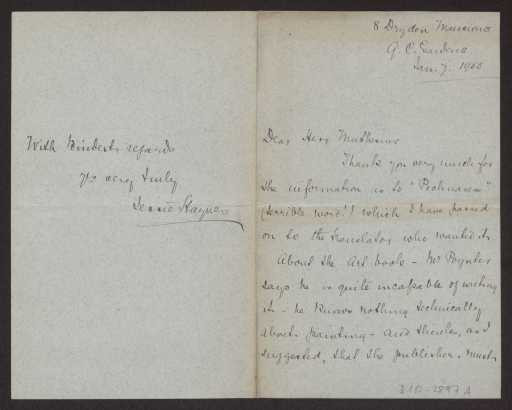 8 Drydon Mansions
G. C. Gardens
Jan. 7. 1903
Dear Herr Muthesius
Thank you very much for
the information as to "
(terrible word!) which I have passed
on to the translator who wanted it.
About the Art book - Mr Poynter
says he is quite incapable of writing
it - he knows nothing technically
about painting - and thinks, as I
suggested, that the publishers must
With kindest regards
Yrs very truly
D 10-2897 A